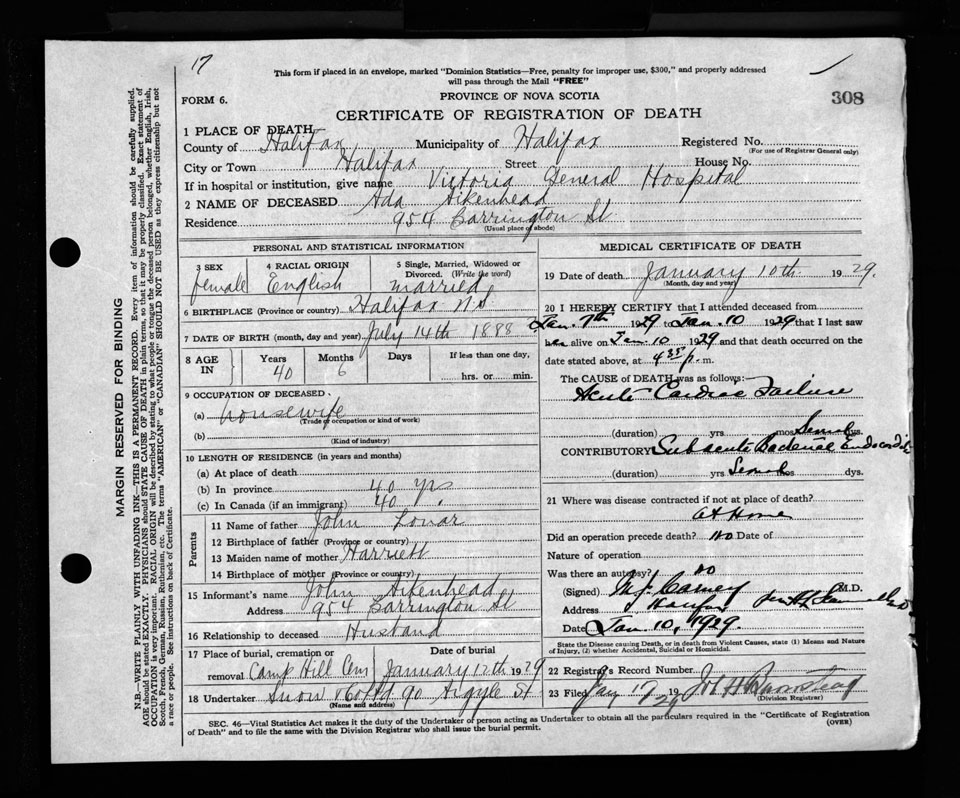 17
This form if placed in an envelope, marked "Dominion Statistics—Free, penalty for improper use, $300," and properly addressed
will pass through the Mail "FREE"
308
FORM 6.
PROVINCE OF NOVA SCOTIA
CERTIFICATE OF REGISTRATION OF DEATH
1 PLACE OF DEATH
County of Halifax Municipality of Halifax Registered No.
(For use of Registrar General only)
City or Town Halifax Street House No.
If in hospital or institution, give name Victoria General Hospital
2 NAME OF DECEASED Ada Aikenhead
Residence 954 Barrington St
(Usual place of abode)
PERSONAL AND STATISTICAL INFORMATION
3 SEX 4 RACIAL ORIGIN 5 Single, Married, Widowed or
Divorced. (Write the word)
female English married
6 BIRTHPLACE (Province or country) Halifax N.S.
7 DATE OF BIRTH (month, day and year) July 14th 1888
8 AGE IN Years Months Days If less than one day,
40 6 hrs. or min.
9 OCCUPATION OF DECEASED
(a) housewife
(Trade or occupation or kind of work)
(b)
(Kind of industry)
10 LENGTH OF RESIDENCE (in years and months)
(a) At place of death
(b) In province 40 yrs
(c) In Canada (if an immigrant) 40
Parents
11 Name of father John
12 Birthplace of father (Province or country)
13 Maiden name of mother Harriett
14 Birthplace of mother (Province or country)
15 Informant's name John Aikenhead
Address 954 Barrington St
16 Relationship to deceased Husband
17 Place of burial, cremation or removal Date of burial
Camp Hill Cem January 12th 1929
18 Undertaker Snow & Co Ltd 90 Argyle St
(Name and address)
MEDICAL CERTIFICATE OF DEATH
19 Date of death January 10th 1929.
(Month, day and year)
20 I HEREBY CERTIFY that I attended deceased from
Jan. 7th 1929 to Jan. 10 1929 that I last saw
her alive on Jan. 10 1929 and that death occurred on the
date stated above, at 4 p.m.
The CAUSE OF DEATH was as follows:
Acute Cardiac Failure
(duration) yrs mos dys.
CONTRIBUTORY Subacute Endocarditis
(duration) yrs mos dys.
21 Where was disease contracted if not at place of death?
At Home
Did an operation precede death? No Date of
Nature of operation
Was there an autopsy? No
(Signed) M.J. Carney M.D.
Address Halifax
Date Jan. 10, 1929.
State the Disease causing Death, or in death from Violent Causes, state (1) Means and Nature
of Injury, (2) whether Accidental, Suicidal or Homicidal.
22 Registrar's Record Number
23 Filed Jan 19 1929
(Division Registrar)
SEC. 46—Vital Statistics Act makes it the duty of the Undertaker or person acting as Undertaker to obtain all the particulars required in the "Certificate of Registration
of Death" and to file the same with the Division Registrar who shall issue the burial permit.
(OVER)
MARGIN RESERVED FOR BINDING
N.B.—WRITE PLAINLY WITH UNFADING INK—THIS IS A PERMANENT RECORD. Every item of information should be carefully supplied.
AGE should be stated EXACTLY. PHYSICIANS should STATE CAUSE OF DEATH in plain terms, so that it may be properly classified. Exact statement of
OCCUPATION is very important. RACIAL ORIGIN will be described by stating to what people or tongue the deceased person belonged, whether English, Irish,
Scotch, French, German, Russian, Ruthenian, etc. The terms "AMERICAN" or "CANADIAN" SHOULD NOT BE USED as they express citizenship but not
a race or people. See instructions on back of Certificate.